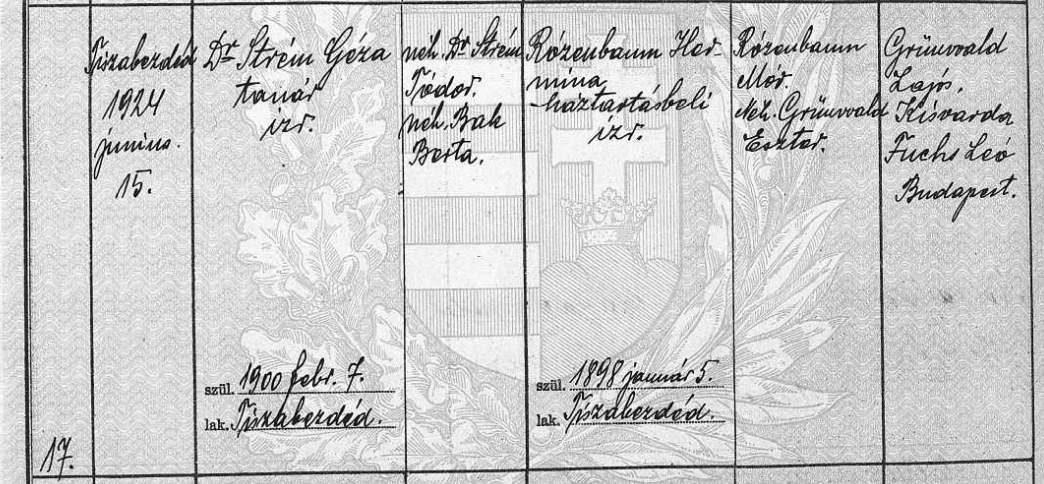 Tiszabezdéd
1924
június.
15.
Dr Strém Géza
tanár
izr.
néh. Dr Strém
Tódor.
néh. Bak
Berta.
Rózenbaum Her-
mina
háztartásbeli
izr.
Rózenbaum
Mór.
Néh. Grünvvald
Eszter.
Grünvvald
Lajos.
Kisvarda
Fuchs Leó
Budapest.
szül. 1900 febr. 7.
lak. Tiszabezdéd.
szül. 1898 január 5.
lak. Tiszabezdéd.
17.